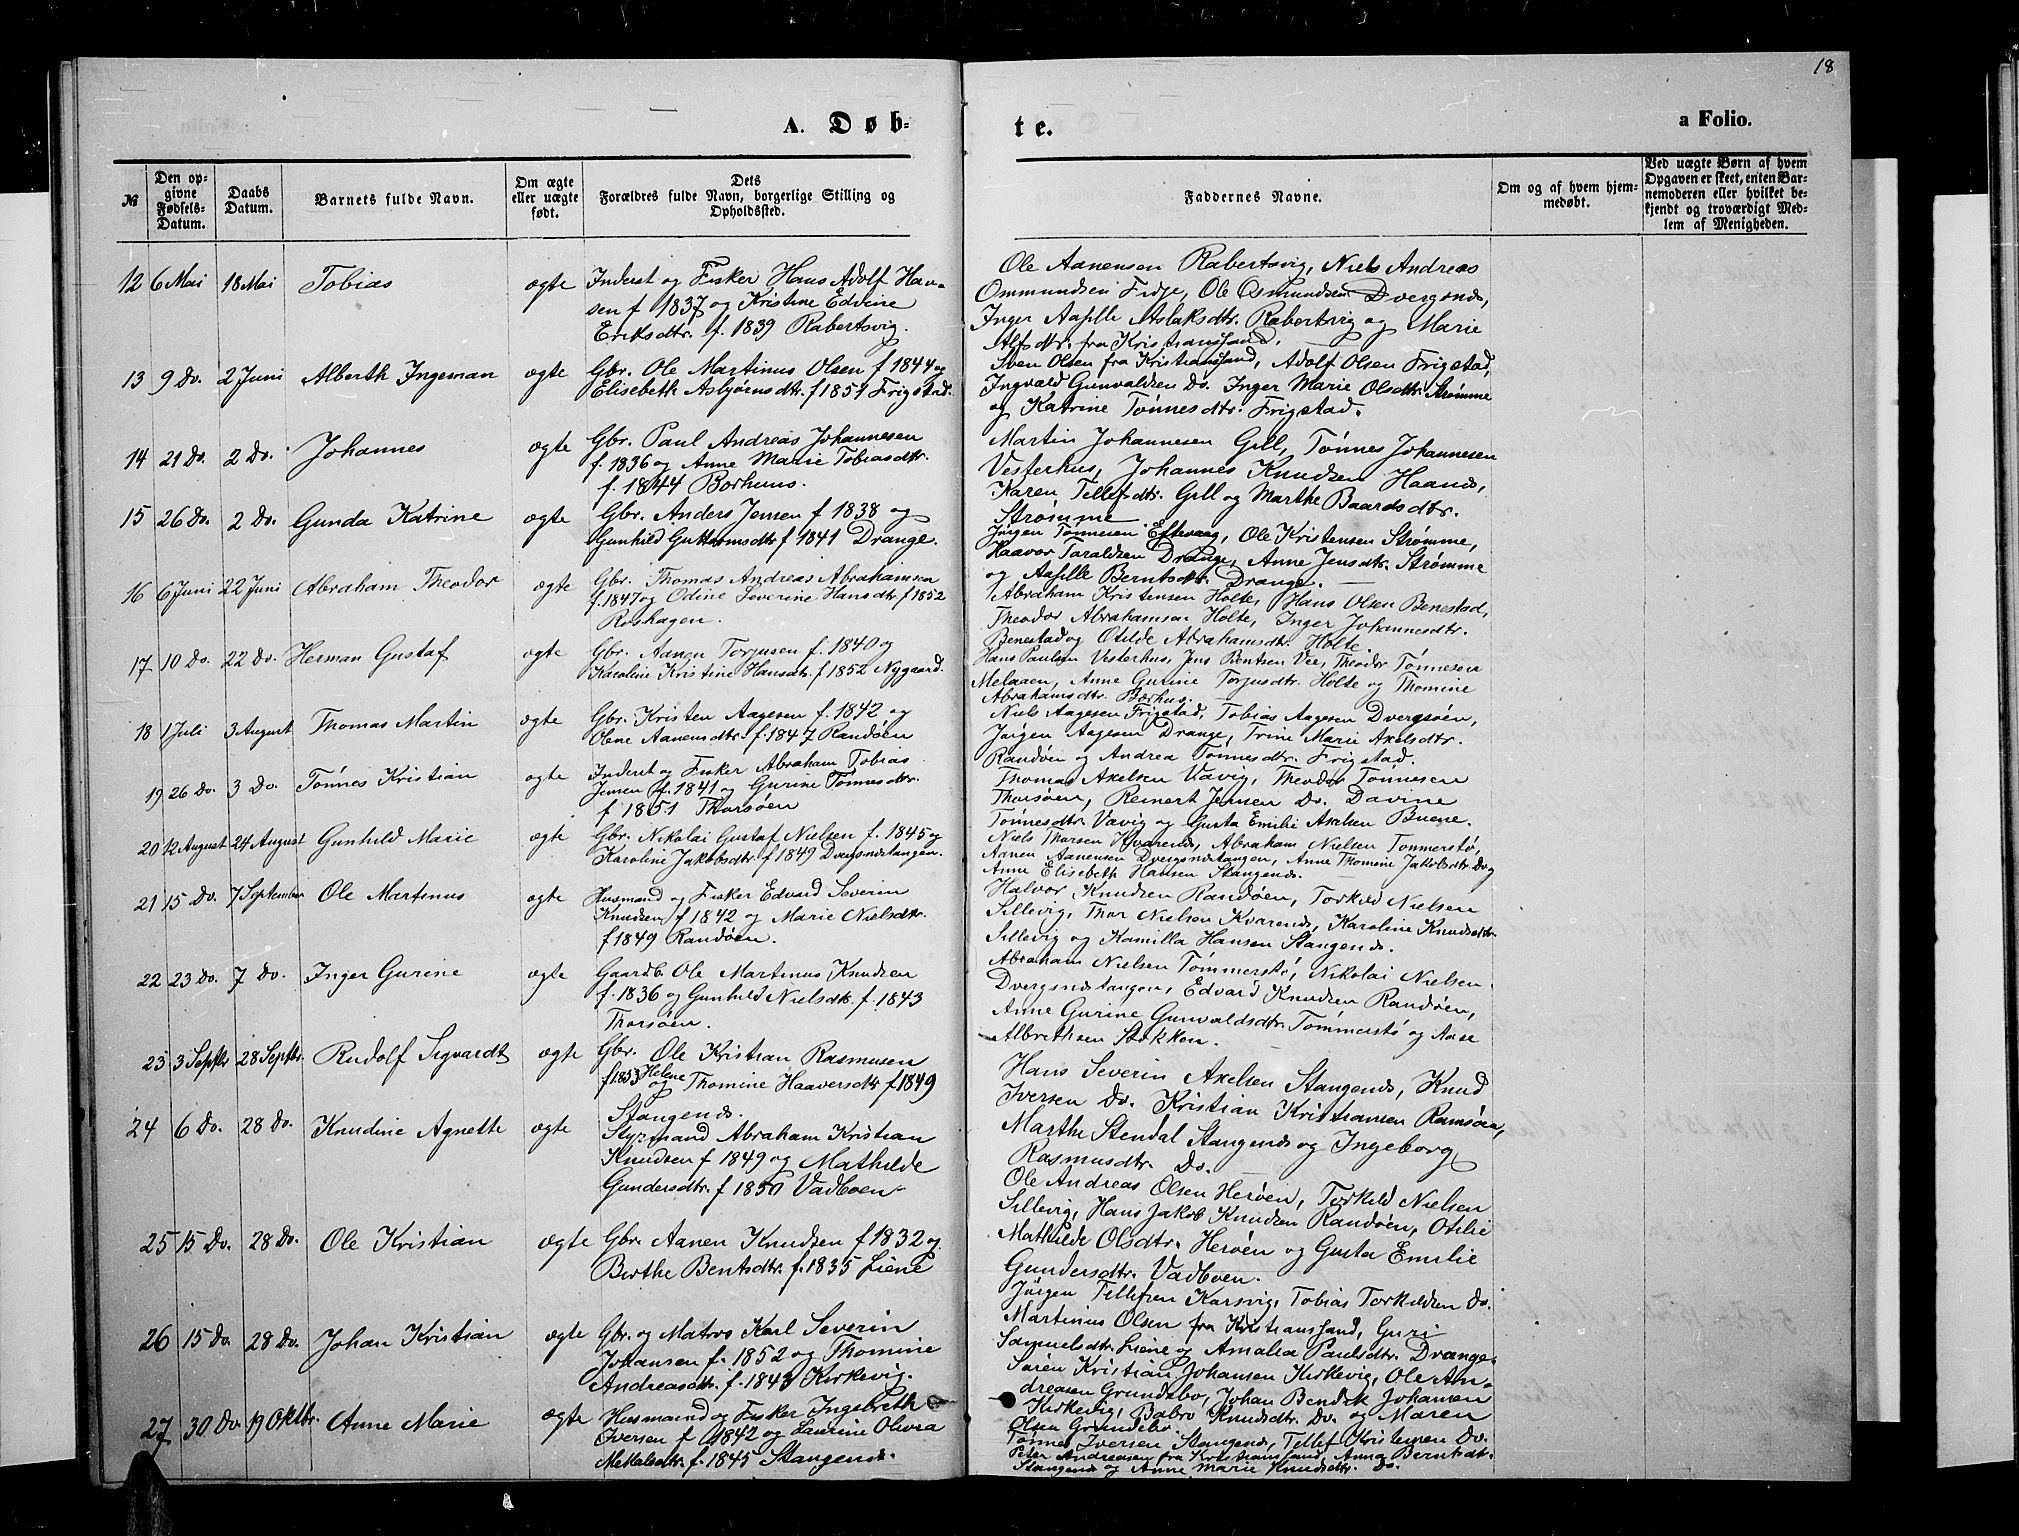 18
A. Døb-
te.
a Folio.
№
Den op-
givne
Fødsels-
Datum.
Daabs
Datum.
Barnets fulde Navn.
Om ægte
eller uægte
født.
Dets
Forældres fulde Navn, borgerlige Stilling og
Opholdssted.
Faddernes Navne.
Om og af hvem hjem-
medøbt.
Ved uægte Børn af hvem
Opgaven er skeet, enten Bar-
nemoderen eller hvilket be-
kjendt og troværdigt Med-
lem af Menigheden.
12 6 Mai 18 Mai Tobias ægte Inderst og Fisker Hans Adolf Han-
sen f 1837 og Kristine Edvine
Eriksdtr. f. 1839 Rabertsvig.
Ole Aanensen Rabertsvig, Niels Andreas
Ommundsen Fidje, Ole Osmundsen Dvergsnds,
Inger Aasille Aslaksdtr. Rabertsvig og Marie
Alfsdtr. fra Kristianssand.
13 9 Do. 2 Juni Alberth Ingeman ægte Gbr. Ole Martinus Olsen f 1844 og
Elisebeth Asbjørnsdtr. f 1851 Frigstad.
Sven Olsen fra Kristianssand, Adolf Olsen Frigstad,
Ingvald Gunvaldsen Do. Inger Marie Olsdtr. Strømme
og Katrine Tønnesdtr. Frigstad.
14 21 Do. 2 Do. Johannes ægte Gbr. Paul Andreas Johannesen
f. 1836 og Anne Marie Tobiasdtr.
f. 1844 Borhuus.
Martin Johannesen Gill, Tønnes Johannesen
Vesterhus, Johannes Knudsen Haands,
Karen Tellefsdtr. Gill og Marthe Baardsdtr.
Strømme
15 26 Do. 2 Do. Gunda Katrine ægte Gbr. Anders Jensen f 1838 og
Gunhild Guttormsdtr f 1841 Drange.
Jørgen Tønnesen Eftevaag, Ole Kristensen Strømme,
Haavor Taraldsen Drange, Anne Jensdtr. Strømme
og Aasille Berntsdtr. Drange.
16 6 Juni 22 Juni Abraham Theodor ægte Gbr. Thomas Andreas Abrahamsen
f. 1847 og Odine Severine Hansdtr. f 1852
Roshagen.
Abraham Kristensen Holte, Hans Olsen Benestad,
Theodor Abrahamsen Holte, Inger Johannesdtr.
Benestad og Otilde Abrahamsdtr. Holte.
17 10 Do. 22 Do. Herman Gustaf ægte Gbr. Aanen Torjusen f. 1840 og
Karoline Kristine Hansdtr. f 1852 Nygaard.
Hans Paulsen Vesterhus, Jens Bentsen Vee, Theodor Tønnesen
Melaaen, Anne Gurine Torjusdtr. Holte og Thomine
Abrahamsdtr. Borhus.
18 1 Juli 3 August Thomas Martin ægte Gbr. Kristen Aagesen f. 1842 og
Olene Aanensdtr. f. 1847 Randøen
Niels Aagesen Frigstad, Tobias Aagesen Dvergsøen,
Jørgen Aagesen Drange, Trine Marie Axelsdtr.
Randøen og Andrea Tønnesdtr. Frigstad.
19 26 Do. 3 Do. Tønnes Kristian ægte Inderst og Fisker Abraham Tobias
Jensen f. 1841 og Gurine Tønnesdtr.
f 1851 Tharsøen
Thomas Axelsen Vavig, Theodor Tønnesen
Tharsøen, Reinert Jensen Do. Davine
Tønnesdtr. Vavig og Gusta Emilie Axelsen Buene.
20 12 August 24 August Gunhild Marie ægte Gbr. Nikolai Gustaf Nielsen f. 1845 og
Karoline Jakobsdtr. f 1849 Dvergsnestangen.
Niels Tharsen Kvarends, Abraham Nielsen Tømmerstø,
Aanen Aanensen Dvergsnestangen, Anne Thomine Jakobsdtr. Do. og
Anne Elisebeth Hansen Stangends.
21 15 Do. 7 September Ole Martinus ægte Husmand og Fisker Edvard Severin
Knudsen f 1842 og Marie Nielsdtr.
f 1849 Randøen.
Halvor Knudsen Randøen, Torkild Nielsen
Sillevig, Thor Nielsen Kvarends, Karoline Knudsdtr.
Sillevig og Kamilla Hansen Stangends.
22 23 Do. 7 Do. Inger Gurine ægte Gaardb. Ole Martinus Knudsen
f. 1836 og Gunhild Nielsdtr. f. 1843
Tharsøen.
Abraham Nielsen Tømmerstø, Nikolai Nielsen
Dvergsnestangen, Edvard Knudsen Randøen,
Anne Gurine Gunvaldsdtr. Tømmerstø og Aase
Albrethsen Stokken.
23 3 Septbr 28 Septbr. Rudolf Sigvardt ægte Gbr. Ole Kristian Rasmusen
f 1853 og Helene Thomine Haaversdtr f 1849
Stangends.
Hans Severin Axelsen Stangends, Knud
Iversen Do. Kristian Kristiansen Ramsøen,
Marthe Stendal Stangends og Ingeborg
Rasmusdtr. Do.
24 6 Do. 28 Do. Knudine Agnethe ægte Styrmand Abraham Kristian
Knudsen f 1849 og Mathilde
Gundersdtr. f 1850 Vadboen
Ole Andreas Olsen Herøen, Torkild Nielsen
Sillevig, Hans Jakob Knudsen Randøen, Otilie
Mathilde Olsdtr. Herøen og Gusta Emilie
Gundersdtr. Vadboen.
25 15 Do. 28 Do. Ole Kristian ægte Gbr. Aanen Knudsen f 1832 og
Birthe Bentsdtr. f. 1835 Liene
Jørgen Tellefsen Korsvig, Tobias Torkildsen Do.
Martinius Olsen fra Kristianssand, Guri
Samuelsdtr. Liene og Amalia Paulsdtr. Drange.
26 15 Do. 28 Do. Johan Kristian ægte Gbr. og Matros Karl Severin
Johansen f. 1852 og Thomine
Andreasdtr. f. 1843 Kirkevig.
Søren Kristian Johansen Kirkevig, Ole An-
dreasen Grundebo, Johan Bendik Johansen
Kirkevig, Babro Knudsdtr. Do. og Maren
Olsen Grundebo.
27 30 Do. 19 Oktbr. Anne Marie ægte Husmand og Fisker Ingebreth
Iversen f 1842 og Laurine Olivia
Mekkelsdtr. f. 1845 Stangends.
Tønnes Iversen Stangends, Tellef Kristensen Do.
Peter Andreasen fra Kristianssand, Anna Berntsdtr.
Stangends og Anne Marie Knudsdtr. Do.